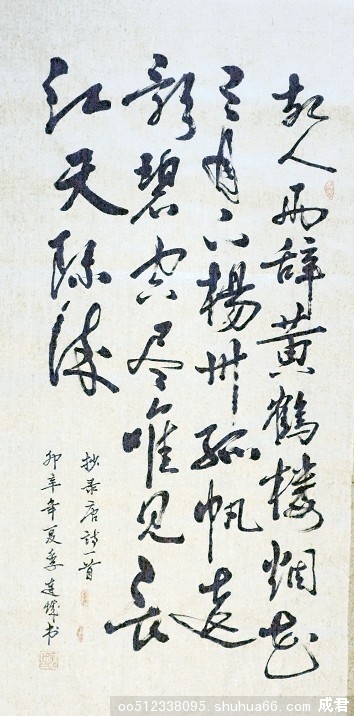 故人西辞黄鹤楼烟花
三月下楊州孤帆远
影碧空尽唯见长
江天际流
抄录唐诗一首
卯辛年夏季 书
oo512338095.shuhua66.com 成君